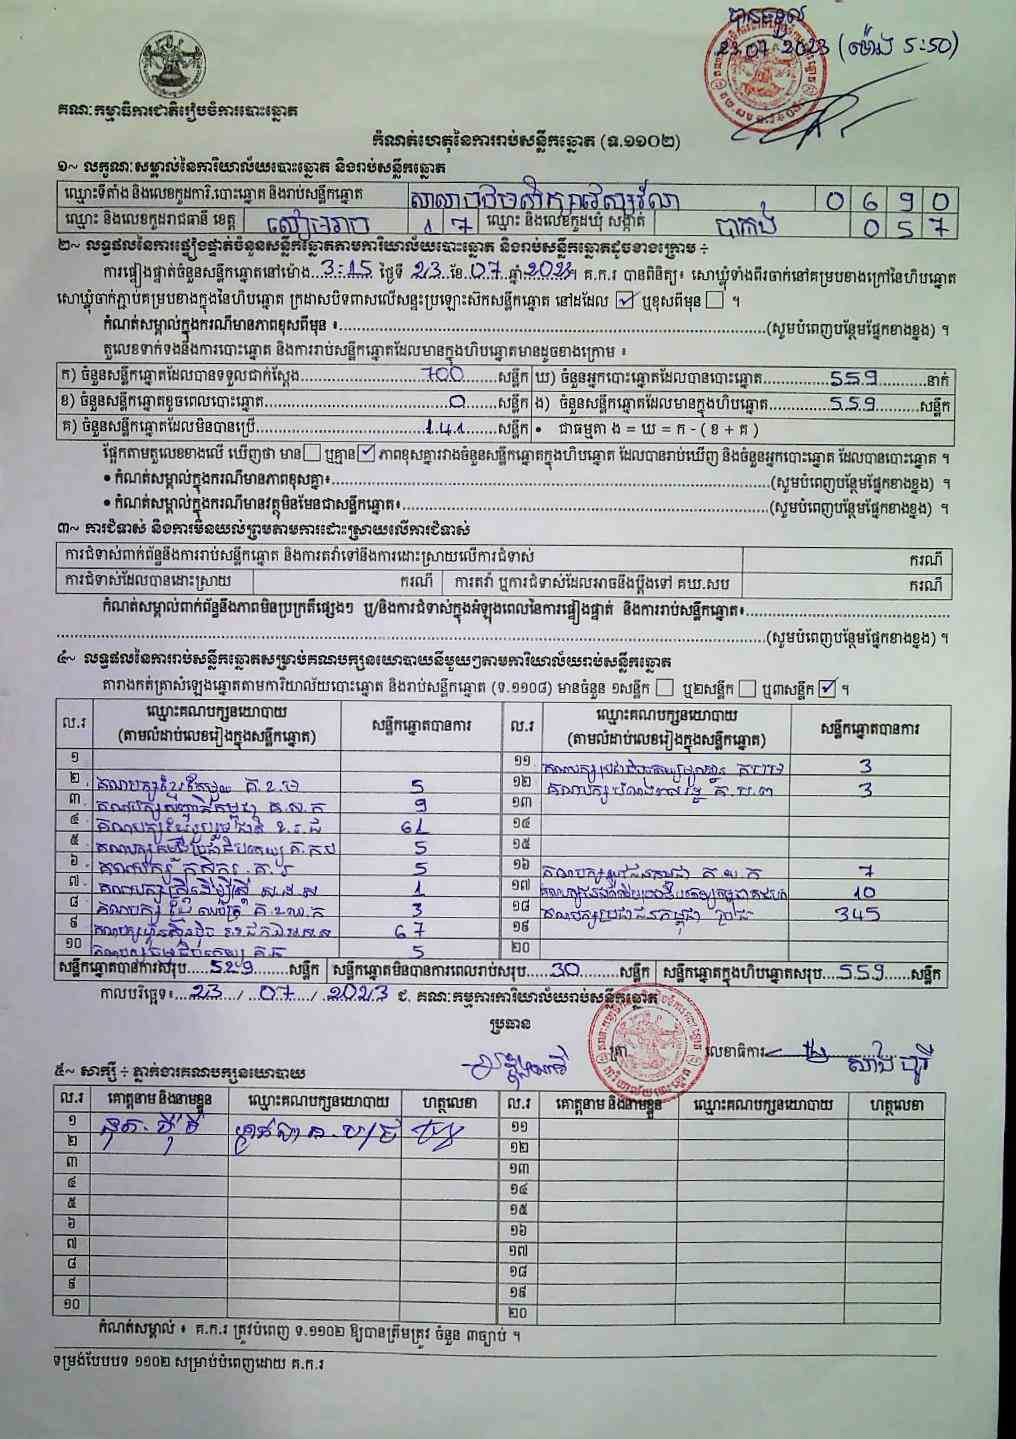 បានទទួល
23.07.2023 (ម៉ោង 5:50)
គណៈកម្មាធិការជាតិរៀបចំការបោះឆ្នោត
កំណត់ហេតុនៃការរាប់សន្លឹកឆ្នោត (ទ.១១០២)
១~ លក្ខណៈសម្គាល់នៃការិយាល័យបោះឆ្នោត និងរាប់សន្លឹកឆ្នោត
ឈ្មោះទីតាំង និងលេខកូដការិ.បោះឆ្នោត និងរាប់សន្លឹកឆ្នោត 0 6 9 0
ឈ្មោះ និងលេខកូដរាជធានី ខេត្ត សៀមរាប 1 7 ឈ្មោះ និងលេខកូដឃុំ សង្កាត់ បាកង 0 5 7
២~ លទ្ធផលនៃការផ្ទៀងផ្ទាត់ចំនួនសន្លឹកឆ្នោតតាមការិយាល័យបោះឆ្នោត និងរាប់សន្លឹកឆ្នោតដូចខាងក្រោម ÷
ការផ្ទៀងផ្ទាត់ចំនួនសន្លឹកឆ្នោតនៅម៉ោង...3:15 ថ្ងៃទី 23 ខែ 07 ឆ្នាំ 2023។ គ.ក.រ បានពិនិត្យ៖ សោឃ្លុំទាំងពីរចាក់នៅគម្របខាងក្រៅនៃហិបឆ្នោត
សោឃ្លុំចាក់ភ្ជាប់គម្របខាងក្នុងនៃហិបឆ្នោត ក្រដាសបិទពាសលើសន្ទះប្រឡោះស៊កសន្លឹកឆ្នោត នៅដដែល ☑ ឬខុសពីមុន ☐ ។
កំណត់សម្គាល់ក្នុងករណីមានភាពខុសពីមុន ៖..........(សូមបំពេញបន្ថែមផ្នែកខាងខ្នង) ។
តួលេខទាក់ទងនឹងការបោះឆ្នោត និងការរាប់សន្លឹកឆ្នោតដែលមានក្នុងហិបឆ្នោតមានដូចខាងក្រោម ៖
ក) ចំនួនសន្លឹកឆ្នោតដែលបានទទួលជាក់ស្តែង..........700..........សន្លឹក ឃ) ចំនួនអ្នកបោះឆ្នោតដែលបានបោះឆ្នោត..........559..........នាក់
ខ) ចំនួនសន្លឹកឆ្នោតខូចពេលបោះឆ្នោត..........0..........សន្លឹក ង) ចំនួនសន្លឹកឆ្នោតដែលមានក្នុងហិបឆ្នោត..........559..........សន្លឹក
គ) ចំនួនសន្លឹកឆ្នោតដែលមិនបានប្រើ..........141..........សន្លឹក • ជាធម្មតា ង = ឃ = ក - ( ខ + គ )
ផ្អែកតាមតួលេខខាងលើ ឃើញថា មាន ☐ ឬគ្មាន ☑ ភាពខុសគ្នារវាងចំនួនសន្លឹកឆ្នោតក្នុងហិបឆ្នោត ដែលបានរាប់ឃើញ និងចំនួនអ្នកបោះឆ្នោត ដែលបានបោះឆ្នោត ។
• កំណត់សម្គាល់ក្នុងករណីមានភាពខុសគ្នា៖..........(សូមបំពេញបន្ថែមផ្នែកខាងខ្នង) ។
• កំណត់សម្គាល់ក្នុងករណីមានវត្ថុមិនមែនជាសន្លឹកឆ្នោត៖..........(សូមបំពេញបន្ថែមផ្នែកខាងខ្នង) ។
៣~ ការជំទាស់ និងការមិនយល់ព្រមតាមការដោះស្រាយលើការជំទាស់
ការជំទាស់ពាក់ព័ន្ធនឹងការរាប់សន្លឹកឆ្នោត និងការតវ៉ាទៅនឹងការដោះស្រាយលើការជំទាស់ ករណី
ការជំទាស់ដែលបានដោះស្រាយ ករណី ការតវ៉ា ឬការជំទាស់ដែលអាចនឹងប្តឹងទៅ គឃ.សប ករណី
កំណត់សម្គាល់ពាក់ព័ន្ធនឹងភាពមិនប្រក្រតីផ្សេងៗ ឬ/និងការជំទាស់ក្នុងអំឡុងពេលនៃការផ្ទៀងផ្ទាត់ និងការរាប់សន្លឹកឆ្នោត៖..........
..........(សូមបំពេញបន្ថែមផ្នែកខាងខ្នង) ។
៤~ លទ្ធផលនៃការរាប់សន្លឹកឆ្នោតសម្រាប់គណបក្សនយោបាយនីមួយៗតាមការិយាល័យរាប់សន្លឹកឆ្នោត
តារាងកត់ត្រាសំឡេងឆ្នោតតាមការិយាល័យបោះឆ្នោត និងរាប់សន្លឹកឆ្នោត (ទ.១១០៨) មានចំនួន ១សន្លឹក ☐ ឬ២សន្លឹក ☐ ឬ៣សន្លឹក ☑ ។
ល.រ ឈ្មោះគណបក្សនយោបាយ (តាមលំដាប់លេខរៀងក្នុងសន្លឹកឆ្នោត) សន្លឹកឆ្នោតបានការ ល.រ ឈ្មោះគណបក្សនយោបាយ (តាមលំដាប់លេខរៀងក្នុងសន្លឹកឆ្នោត) សន្លឹកឆ្នោតបានការ
១ ១១ 3
២ 5 ១២ 3
៣ 9 ១៣
៤ 61 ១៤
៥ 5 ១៥
៦ 5 ១៦ 7
៧ 1 ១៧ 10
៨ 3 ១៨ គណបក្សប្រជាជនកម្ពុជា 345
៩ 67 ១៩
១០ 5 ២០
សន្លឹកឆ្នោតបានការសរុប.....529.....សន្លឹក សន្លឹកឆ្នោតមិនបានការពេលរាប់សរុប.....30.....សន្លឹក សន្លឹកឆ្នោតក្នុងហិបឆ្នោតសរុប.....559.....សន្លឹក
កាលបរិច្ឆេទ៖...23.../...07.../...2023 ជ. គណៈកម្មការការិយាល័យរាប់សន្លឹកឆ្នោត
ប្រធាន
ត្រា លេខាធិការ
៥~ សាក្សី ÷ ភ្នាក់ងារគណបក្សនយោបាយ
ល.រ គោត្តនាម និងនាមខ្លួន ឈ្មោះគណបក្សនយោបាយ ហត្ថលេខា ល.រ គោត្តនាម និងនាមខ្លួន ឈ្មោះគណបក្សនយោបាយ ហត្ថលេខា
១ ១១
២ ១២
៣ ១៣
៤ ១៤
៥ ១៥
៦ ១៦
៧ ១៧
៨ ១៨
៩ ១៩
១០ ២០
កំណត់សម្គាល់ ៖ គ.ក.រ ត្រូវបំពេញ ទ.១១០២ ឱ្យបានត្រឹមត្រូវ ចំនួន ៣ច្បាប់ ។
ទម្រង់បែបបទ ១១០២ សម្រាប់បំពេញដោយ គ.ក.រ